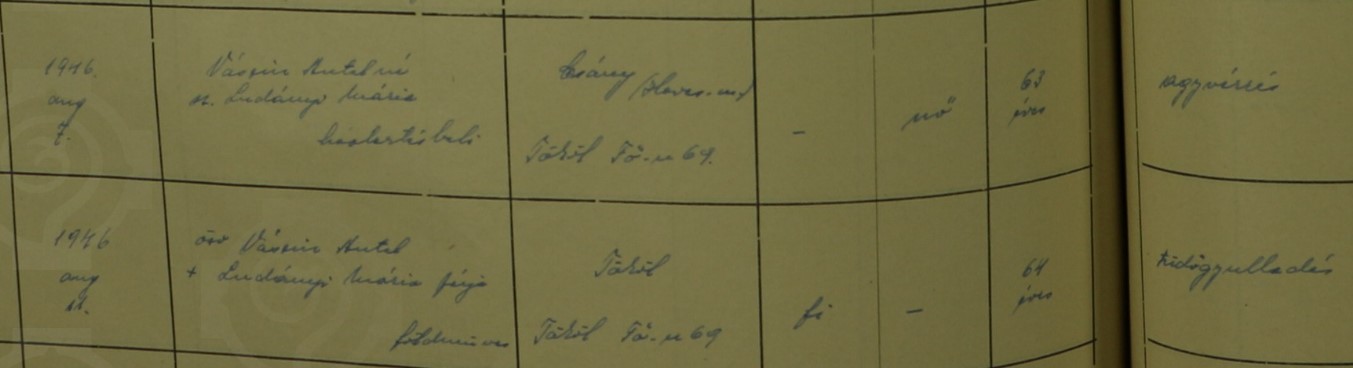 1946.
aug
7.
Vássin Antalné
sz. Ludányi Mária
háztartásbeli
Csány
(Heves-m.)
Tököl Fő-u 69.
–
nő
63
éves
agyvérzés
1946
aug
11.
özv Vássin Antal
+ Ludányi Mária férje
földműves
Tököl
Tököl Fő-u 69
fi
–
64
éves
tüdőgyulladás